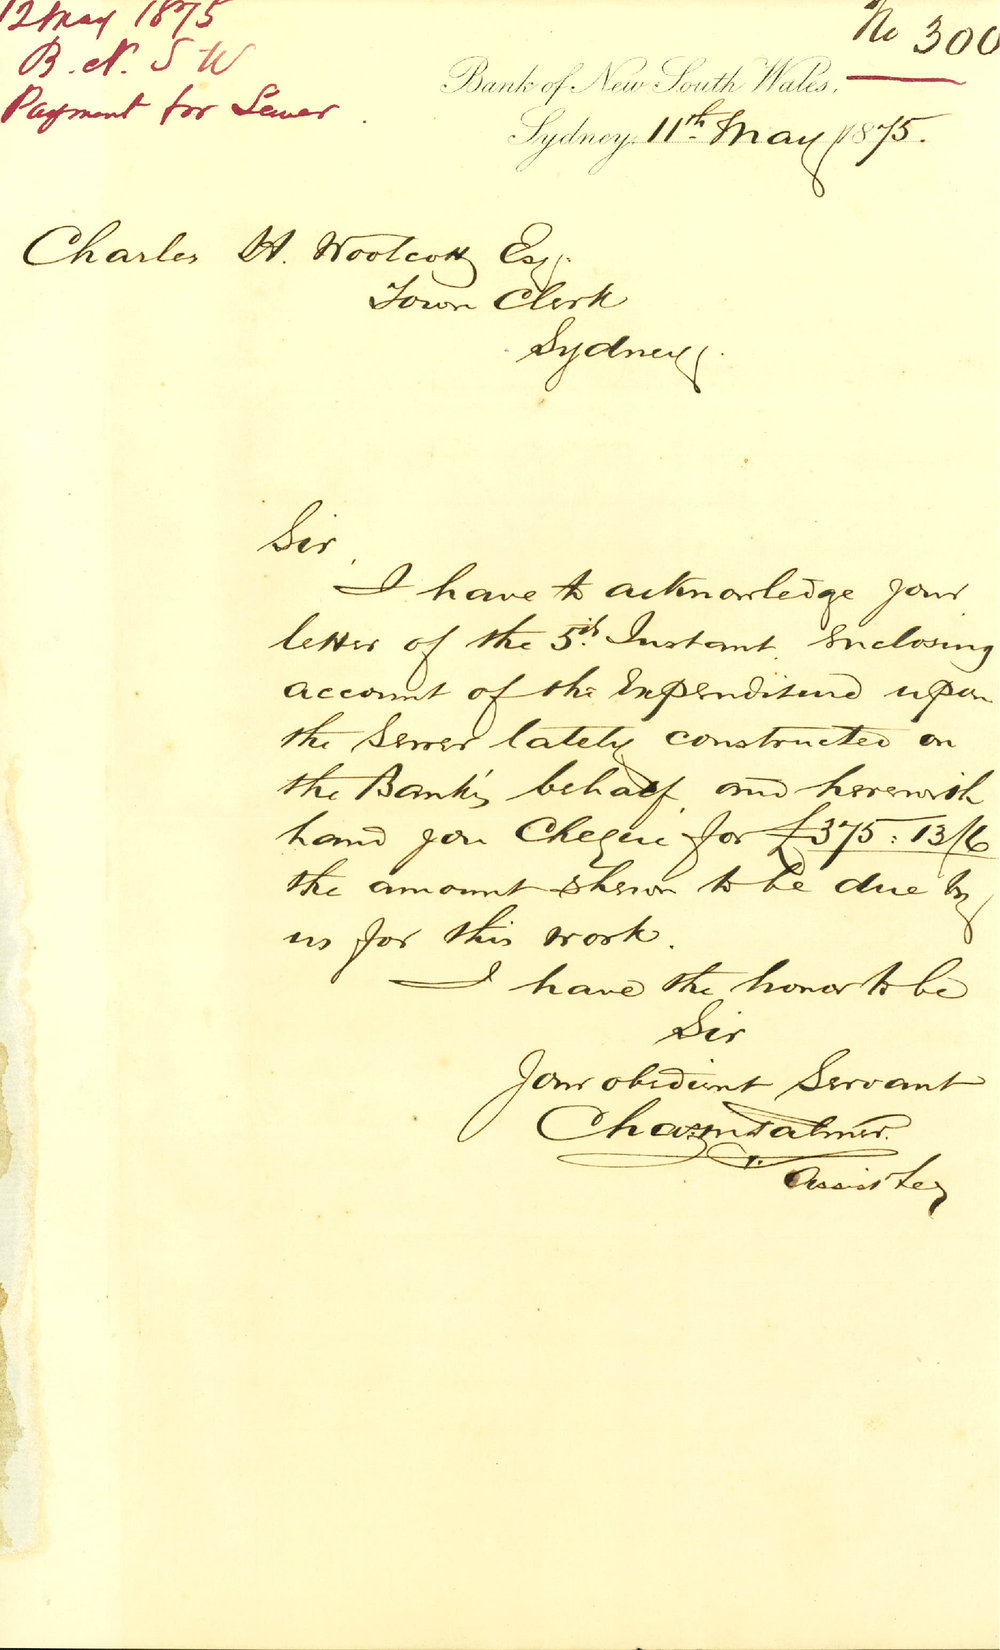 12 May 1875
B. N. S W
Payment for Sewer.
No 300
Bank of New South Wales,
Sydney, 11th May 1875.
Charles H. Woolcott Esq.
Town Clerk
Sydney.
Sir,
I have to acknowledge your
letter of the 5th Instant, enclosing
account of the Expenditure upon
the Sewer lately constructed on
the Bank's behalf, and herewith
hand you Cheque for £375:13/6
the amount shewn to be due by
us for this work.
I have the honor to be
Sir
Your obedient Servant
Palmer.